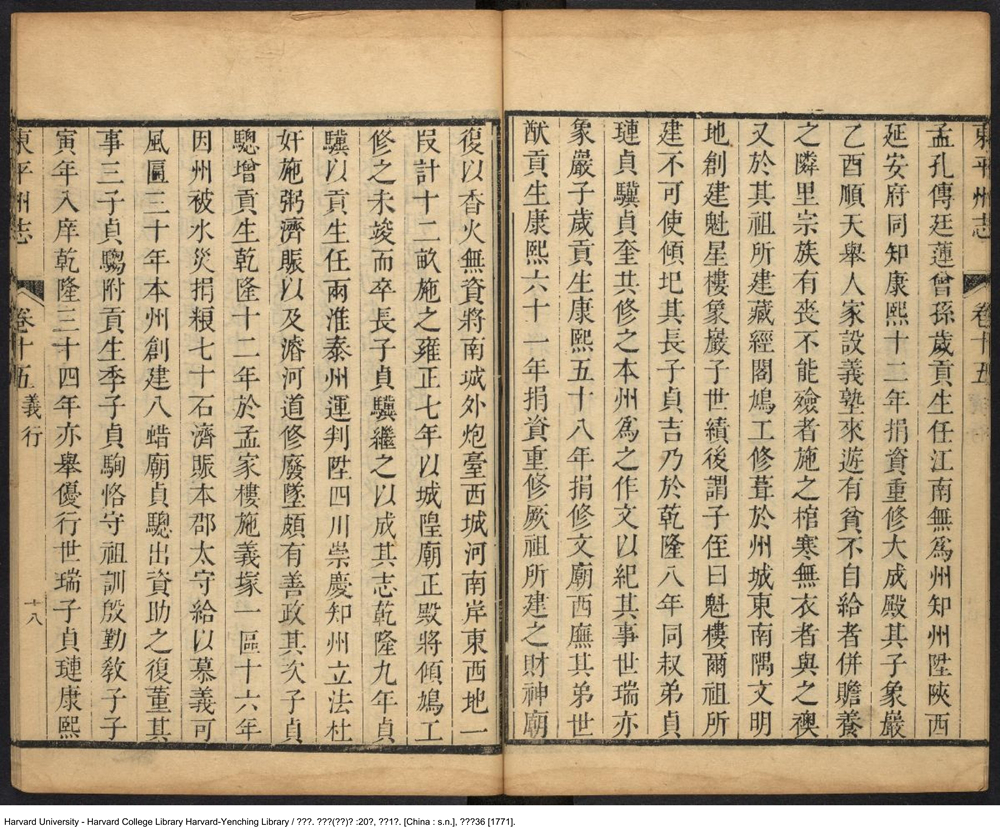 東平州志 卷十五
孟孔傳廷蓮曾孫歲貢生任江南無爲州知州陞陝西
延安府同知康熙十二年捐資重修大成殿其子象巖
乙酉順天舉人家設義塾來遊有貧不自給者併贍養
之隣里宗族有喪不能殮者施之棺寒無衣者與之襖
又於其祖所建藏經閣鳩工修葺於州城東南隅文明
地創建魁星樓象巖子世績後謂子侄曰魁樓爾祖所
建不可使傾圮其長子貞吉乃於乾隆八年同叔弟貞
璉貞驥貞奎共修之本州爲之作文以紀其事世瑞亦
象巖子歲貢生康熙五十八年捐修文廟西廡其弟世
猷貢生康熙六十一年捐資重修厥祖所建之財神廟
復以香火無資將南城外炮臺西城河南岸東西地一
段計十二畝施之雍正七年以城隍廟正殿將傾鳩工
修之未竣而卒長子貞驥繼之以成其志乾隆九年貞
驥以貢生任兩淮泰州運判陞四川崇慶知州立法杜
奸施粥濟賑以及濬河道修廢墜頗有善政其次子貞
驄增貢生乾隆十二年於孟家樓施義塚一區十六年
因州被水災捐粮七十石濟賑本郡太守給以慕義可
風匾三十年本州創建八蜡廟貞驄出資助之復董其
事三子貞騶附貢生季子貞駒恪守祖訓殷勤敎子子
寅年入庠乾隆三十四年亦舉優行世瑞子貞璉康熙
東平州志 卷十五 義行 十八
Harvard University - Harvard College Library Harvard-Yenching Library / ???. ???(??)? :20?, ??1?. [China : s.n.], ???36 [1771].